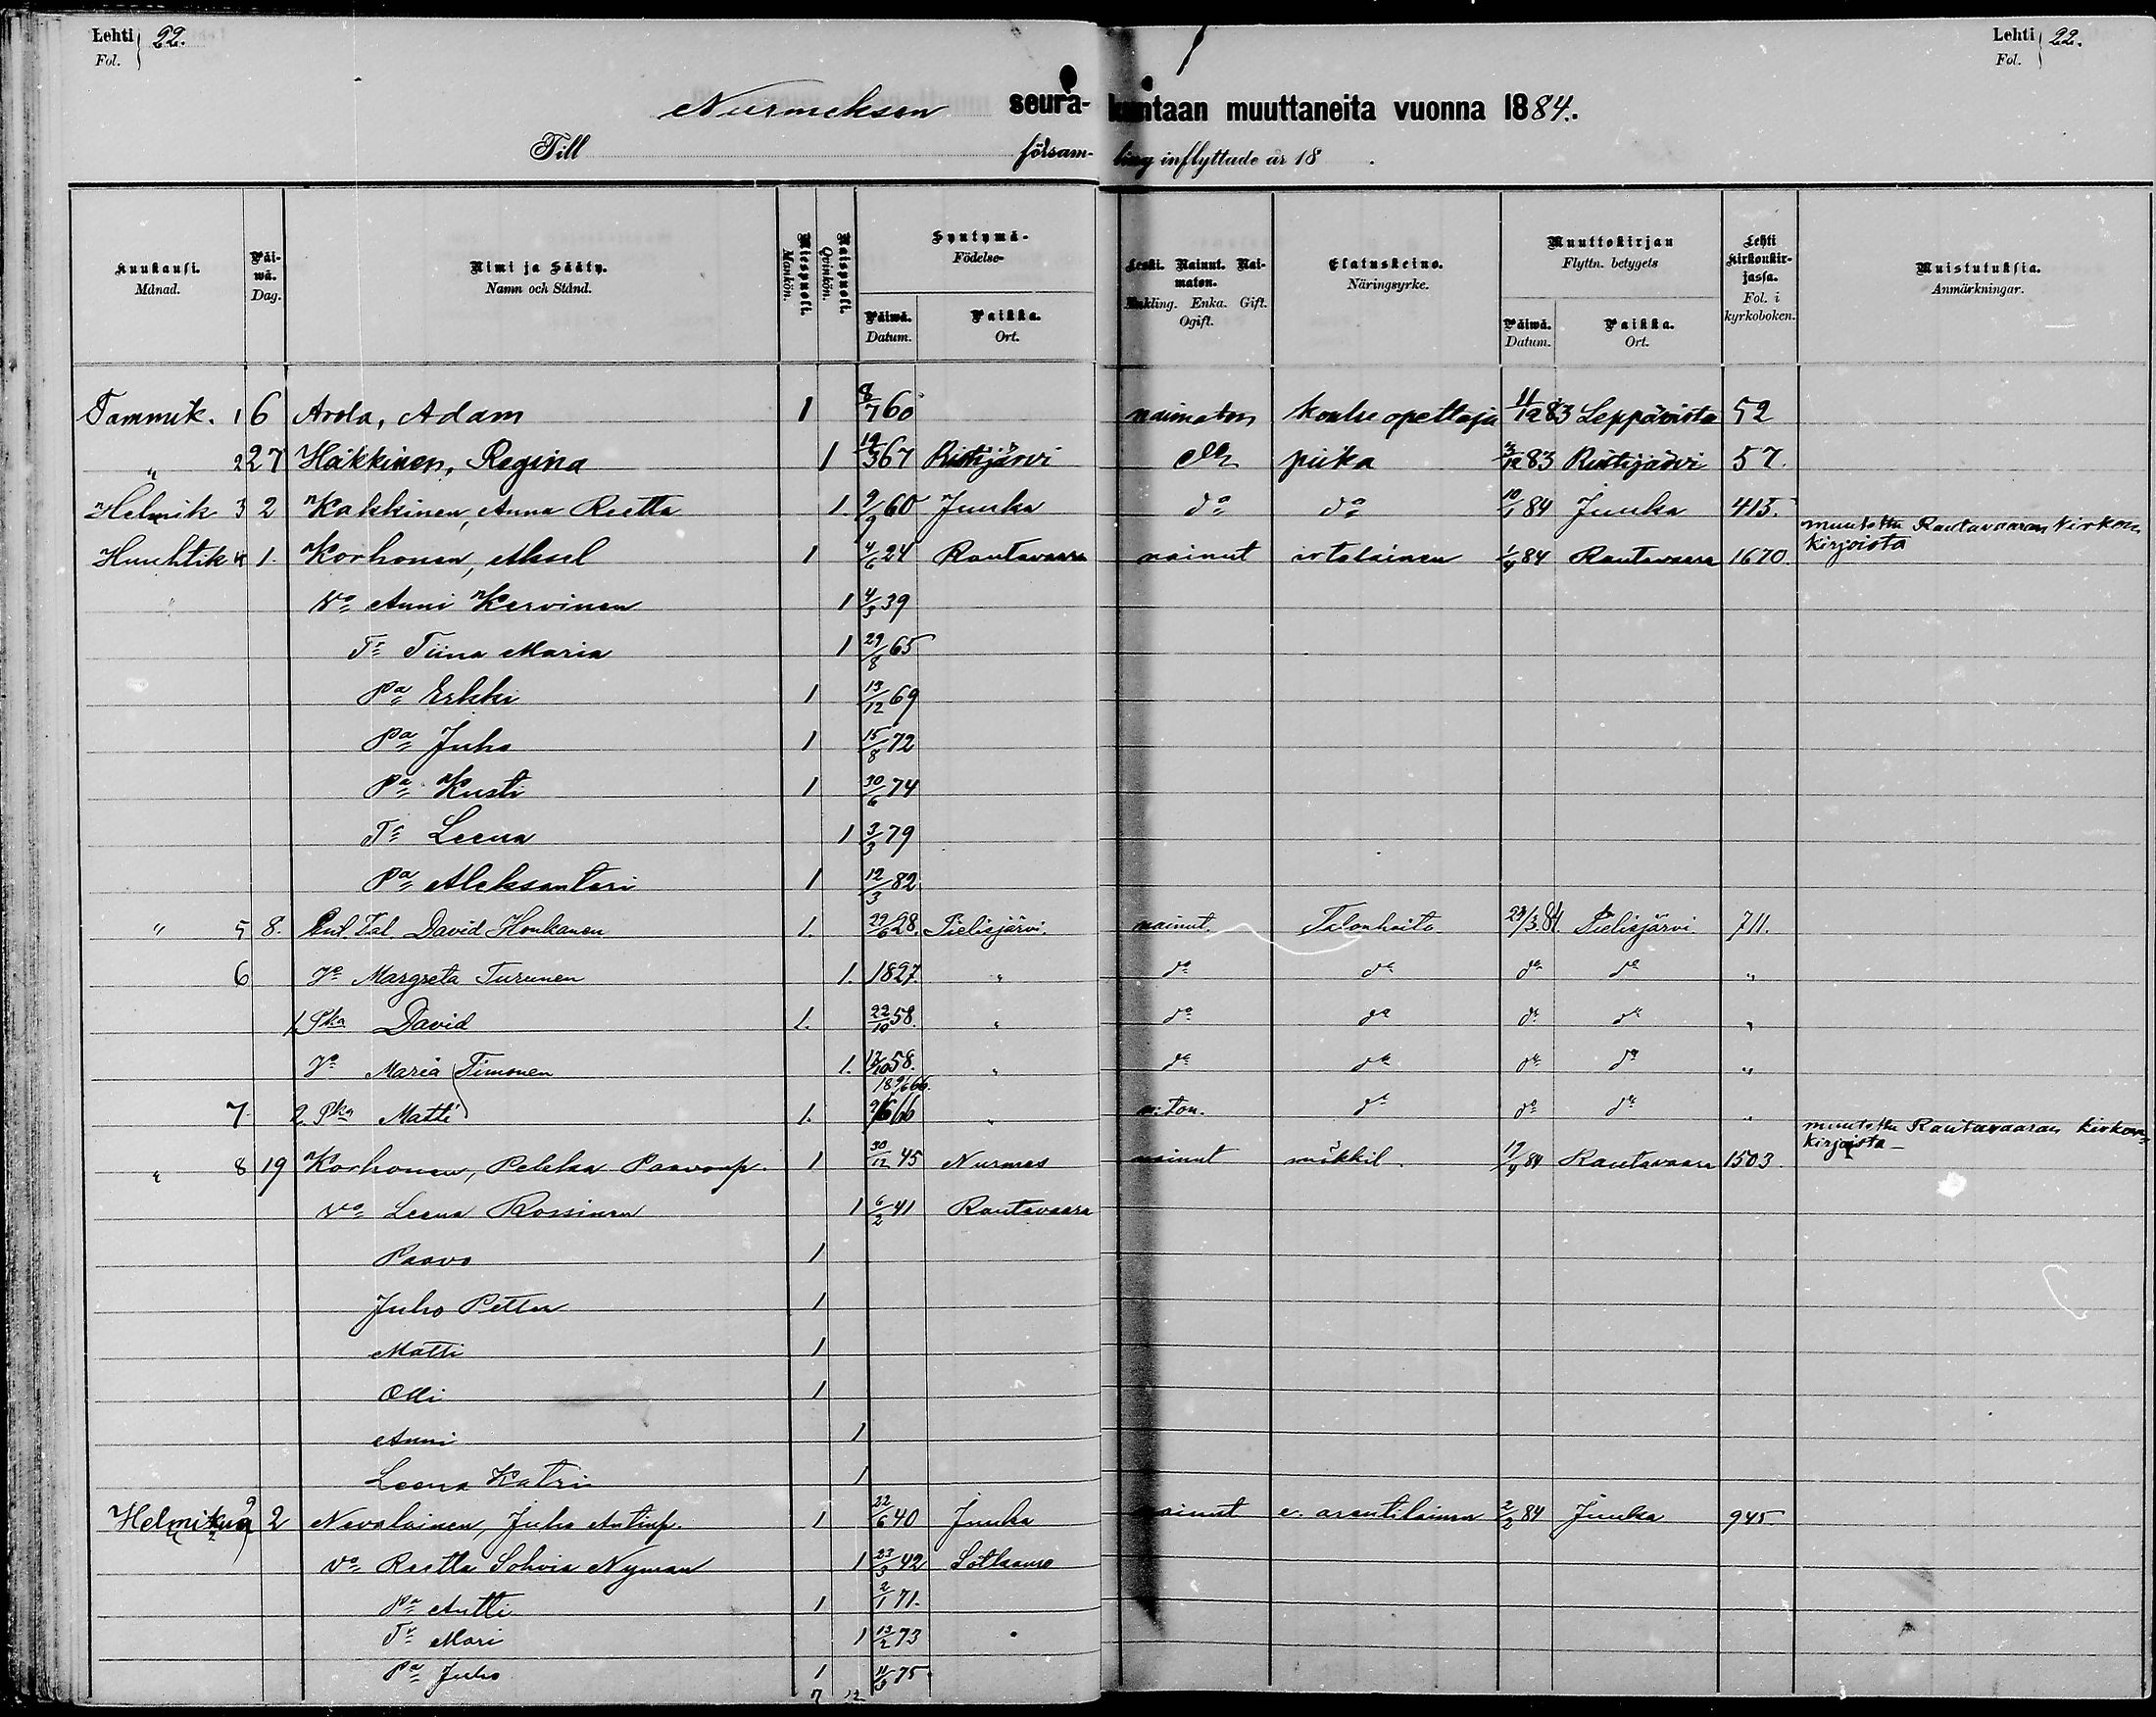 Lehti 22.
Fol.
Lehti 22.
Fol.
Nurmeksen seura-kuntaan muuttaneita vuonna 1884.
Till församling inflyttade år 18 .
Kuukausi. Månad. Päiwä. Dag. Nimi ja Sääty. Namn och Stånd. Miespuoli. Mankön. Naispuoli. Qvinkön. Syntymä- Födelse- Päiwä. Datum. Paikka. Ort. Leski. Nainut. Naimaton. Enkling. Enka. Gift. Ogift. Elatuskeino. Näringsyrke. Muuttokirjan Flyttn. betygets Päiwä. Datum. Paikka. Ort. Lehti kirkonkirjassa. Fol. i kyrkoboken. Muistutuksia. Anmärkningar.
Tammik. 1 6 Arola, Adam 1 8/7 60 naimaton koulu opettaja 11/12 83 Leppävirta 52
" 2 27 Häkkinen, Regina 1 19/3 67 Ristijärvi do piika 3/12 83 Ristijärvi 57.
Helmik 3 2 Kakkinen, Anna Reetta 1. 9/9 60 Juuka do do 10/1 84 Juuka 415.
Huuhtik 4 1. Korhonen, Aksel 1 4/6 24 Rautavaara nainut irtolainen 1/4 84 Rautavaara 1670. muutettu Rautavaaran kirkon kirjoista
Vo Anni Kervinen 1 4/3 39
Tr Tiina Maria 1 29/8 65
Pa Erkki 1 13/12 69
Pa Juho 1 15/8 72
Pa Kusti 1 30/6 74
Tr Leena 1 3/3 79
Pa Aleksanteri 1 12/3 82
" 5 8. Ent. Tal. David Honkanen 1. 29/6 28. Pielisjärvi. nainut. Talonhoito 29/3 84 Pielisjärvi 711.
6 Vo Margreta Turunen 1. 1827. " do do do do "
1 Pka David 1. 22/10 58. " do do do do "
Vo Maria Timonen 1. 12/10 58. " do do do do "
18 9/6 66.
7 2. Pka Matti 1. 9/6 66 " n:ton. do do do "
" 8 19 Korhonen, Pekka Paavonp. 1 30/12 45 Nurmes nainut mökkil. 17/4 84 Rautavaara 1503. muutettu Rautavaaran kirkonkirjoista
Vo Leena Rossinen 1 6/2 41 Rautavaara
Paavo 1
Juho Petter 1
Matti 1
Olli 1
Anni 1
Leena Katri 1
Helmikuu 9 2 Nevalainen, Juho Antinp. 1 22/6 40 Juuka nainut e. arentilainen 2/2 84 Juuka 945
Vo Reetta Sohvia Nyman 1 23/3 42 Sotkamo
Pa Antti 1 2/1 71.
Tr Mari 1 13/2 73
Pa Juho 1 11/3 75
7 12